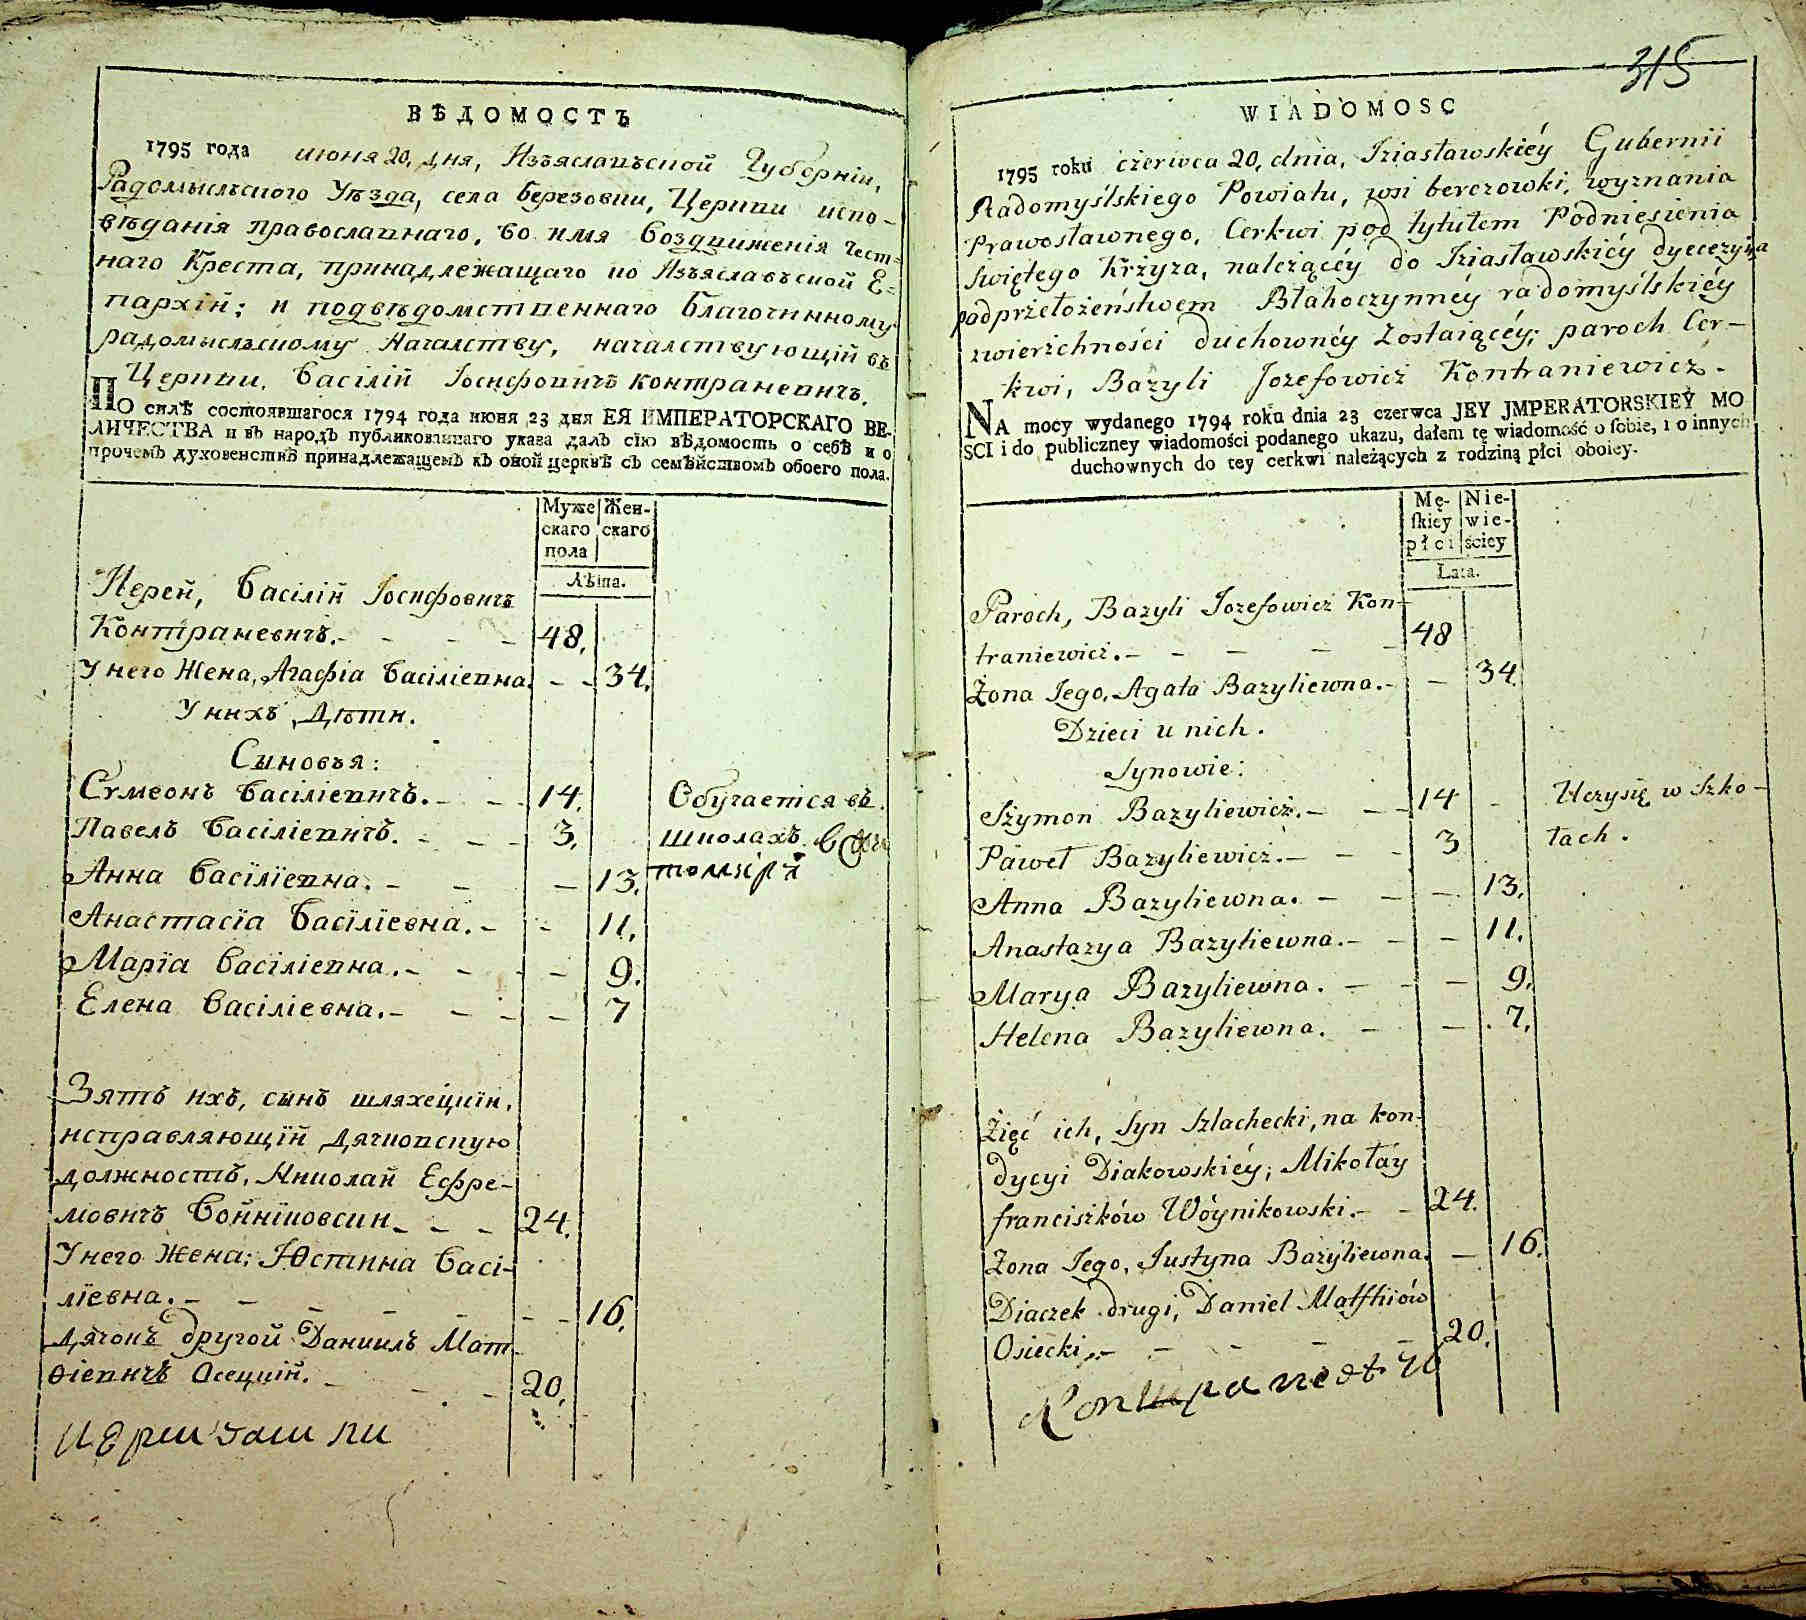 ВѢДОМОСТЬ
1795 года июня 20, дня, Изъяславъской Губерніи,
Радомыслъского Уѣзда, села березовки, Церкви испо-
вѣданія православнаго, во имя Воздвиженія Чест-
наго Креста, принадлежащаго ко Изъяславъской Е-
пархіи; и подвѣдомственнаго Благочинному
радомыслъскому Началству, началствующій въ
Церкви, Василій Іосифовичъ Контраневичъ.
ПО силѣ состоявшагося 1794 года июня 23 дня ЕЯ ИМПЕРАТОРСКАГО ВЕ-
ЛИЧЕСТВА и въ народъ публикованнаго указа далъ сію вѣдомость о себѣ и о
прочемъ духовенствѣ принадлежащемъ къ оной церквѣ съ семѣйствомъ обоего пола.
Муже Жен-
скаго скаго
пола
Лѣта.
Иерей, Василій Іосифовичъ
Контраневичъ. 48,
У него Жена, Агафіа Василіевна. 34.
У нихъ Дѣти.
Сыновья:
Сѵмеонъ Василіевичъ. 14. Обучается въ
Павелъ Василіевичъ. 3, школахъ в Жи
Анна Василіевна. 13. томирѣ
Анастасіа Василіевна. 11,
Маріа Василіевна. 9.
Елена Василіевна. 7
Зять ихъ, сынъ шляхецкій,
исправляющій Дячковскую
должность, Николай Ефре-
мовичъ Война­ковский 24.
У него Жена; Юстина Васі-
ліевна. 16.
Дячокъ другой Даниилъ Мат-
ѳіевичъ Осецкій. 20,
315
WIADOMOSC
1795 roku czerwca 20, dnia, Iziasławskiéy Gubernii
Radomyślskiego Powiatu, wsi berezowki, wyznania
prawosławnego, Cerkwi pod tytułem Podniesienia
świętego Krżyża, należącéy do Iziasławskiéy dyecezyi, a
pod prżełożeństwem Błahoczynnéy radomyślskiéy
zwierzchności duchownéy Zostaiącéy; paroch Cer-
kwi, Bazyli Jozefowicż Kontraniewicż.
NA mocy wydanego 1794 roku dnia 23 czerwca JEY JMPERATORSKIEY MO
SCI i do publiczney wiadomości podanego ukazu, dałem tę wiadomość o ſobie, i o innych
duchownych do tey cerkwi należących z rodziną płci oboiey.
Mę- Nie-
ſkiey wie-
płci ściey
Lata.
Paroch, Bazyli Jozefowicż Kon-
traniewicż. 48
Żona Jego, Agata Bazyliewna. 34.
Dzieci u nich.
Synowie:
Szymon Bazyliewicż. 14 Uczysię w Szko-
Paweł Bazyliewicż. 3 łach.
Anna Bazyliewna. 13.
Anastazya Bazyliewna. 11.
Marya Bazyliewna. 9.
Helena Bazyliewna. 7.
Zięć ich, Syn Szlachecki, na kon-
dycyi Diakowskiéy; Mikołay
franciszków Wóynikowski. 24.
Żona Jego, Justyna Bazyliewna. 16.
Diaczek drugi, Daniel Matfhiów
Osiecki. 20.